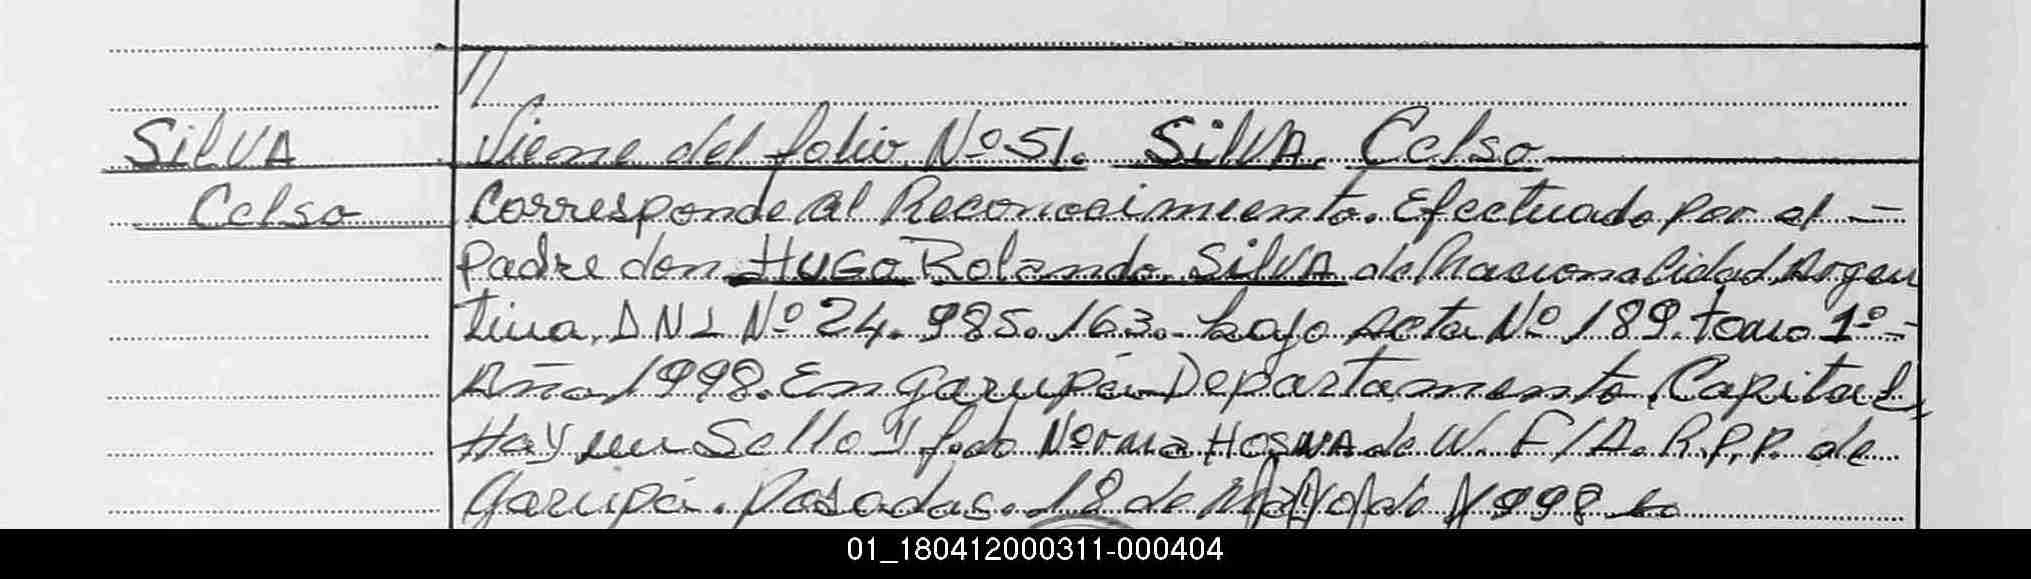 //
SilVA Viene del folio Nº 51. SilVA Celso
Celso Corresponde al Reconocimiento. Efectuado por el –
padre don HUGO Rolando SilVA de Nacionalidad Argen
tina, DNI Nº 24.985.163.- bajo Acta Nº 189. tomo 1º-
Año 1998. En Garupá Departamento Capital,
Hay un Sello y fdo Norma HOSNA de W. F/A. R.P.P. de
Garupá. Posadas. 18 de Mayo de 1998
01_180412000311-000404